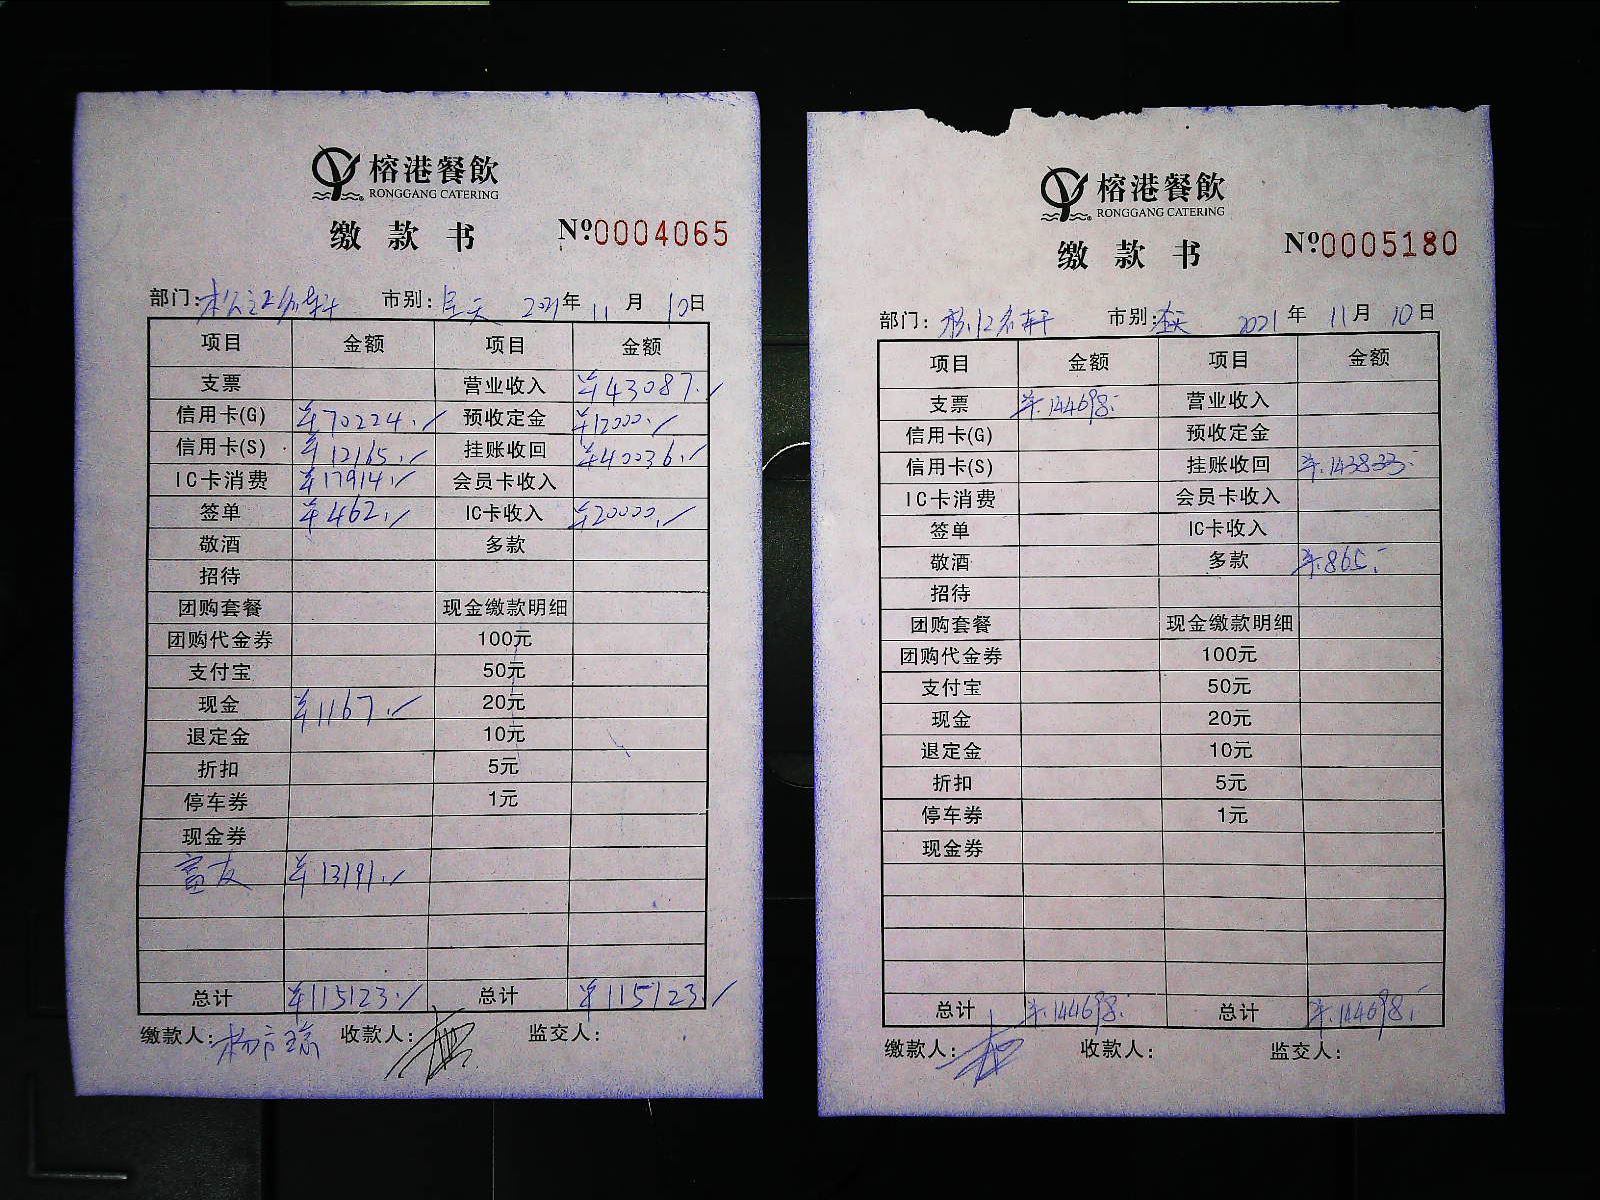 榕港餐飲
RONGGANG CATERING
缴款书 №0004065
部门: 市别:全天 2021年11月10日
项目 金额 项目 金额
支票 营业收入 ¥43087.
信用卡(G) ¥70224. 预收定金 ¥12000.
信用卡(S) ¥12165. 挂账收回 ¥40036.
IC卡消费 ¥17914. 会员卡收入
签单 ¥462. IC卡收入 ¥20000.
敬酒 多款
招待
团购套餐 现金缴款明细
团购代金券 100元
支付宝 50元
现金 ¥1167. 20元
退定金 10元
折扣 5元
停车券 1元
现金券
富友 ¥13191.
总计 ¥115123. 总计 ¥115123.
缴款人: 收款人: 监交人:
榕港餐飲
RONGGANG CATERING
缴款书 №0005180
部门: 市别:全天 2021年11月10日
项目 金额 项目 金额
支票 ¥144698. 营业收入
信用卡(G) 预收定金
信用卡(S) 挂账收回 ¥143833.
IC卡消费 会员卡收入
签单 IC卡收入
敬酒 多款 ¥865.
招待
团购套餐 现金缴款明细
团购代金券 100元
支付宝 50元
现金 20元
退定金 10元
折扣 5元
停车券 1元
现金券
总计 ¥144698. 总计 ¥144698.
缴款人: 收款人: 监交人: